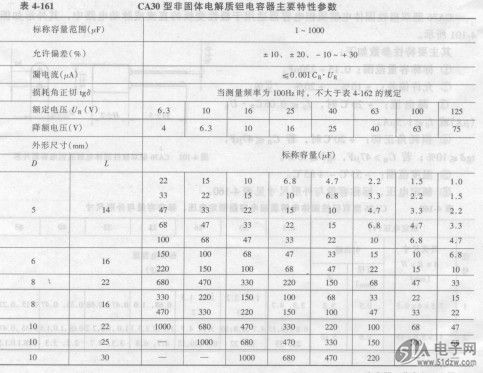 表 4-161 CA30 型非固体电解质钽电容器主要特性参数
标称电容量范围(μF) 1~1000
允许偏差(%) ±10、±20、-10~+30
漏电流(μA) ≤0.001 C_R·U_R
损耗角正切 tgδ 当测量频率为 100Hz 时，不大于表 4-162 的规定
额定电压 U_R (V) 6.3 10 16 25 40 63 100 125
降额电压(V) 4 6.3 10 16 25 40 63 75
外形尺寸(mm) 标称电容量(μF)
D L
5 14
22 15 10 6.8 4.7 2.2 1.5 1.0
33 22 15 10 6.8 3.3 2.2 1.5
47 33 22 15 10 4.7 3.3 2.2
68 47 33 22 15 6.8 4.7 3.3
100 68 47 33 22 10 6.8 4.7
6 16
150 100 68 47 33 15 10 6.8
220 150 100 68 47 22 15 10
8 22 680 470 330 220 150 68 47 33
8 16
330 220 150 100 68 33 22 15
470 330 220 150 100 47 33 22
10 22 1000 680 470 330 220 100 68 47
10 25 — 1000 680 470 330 150 100
10 30 — — 1000 680 470 220
51电子网
www.51dzw.com